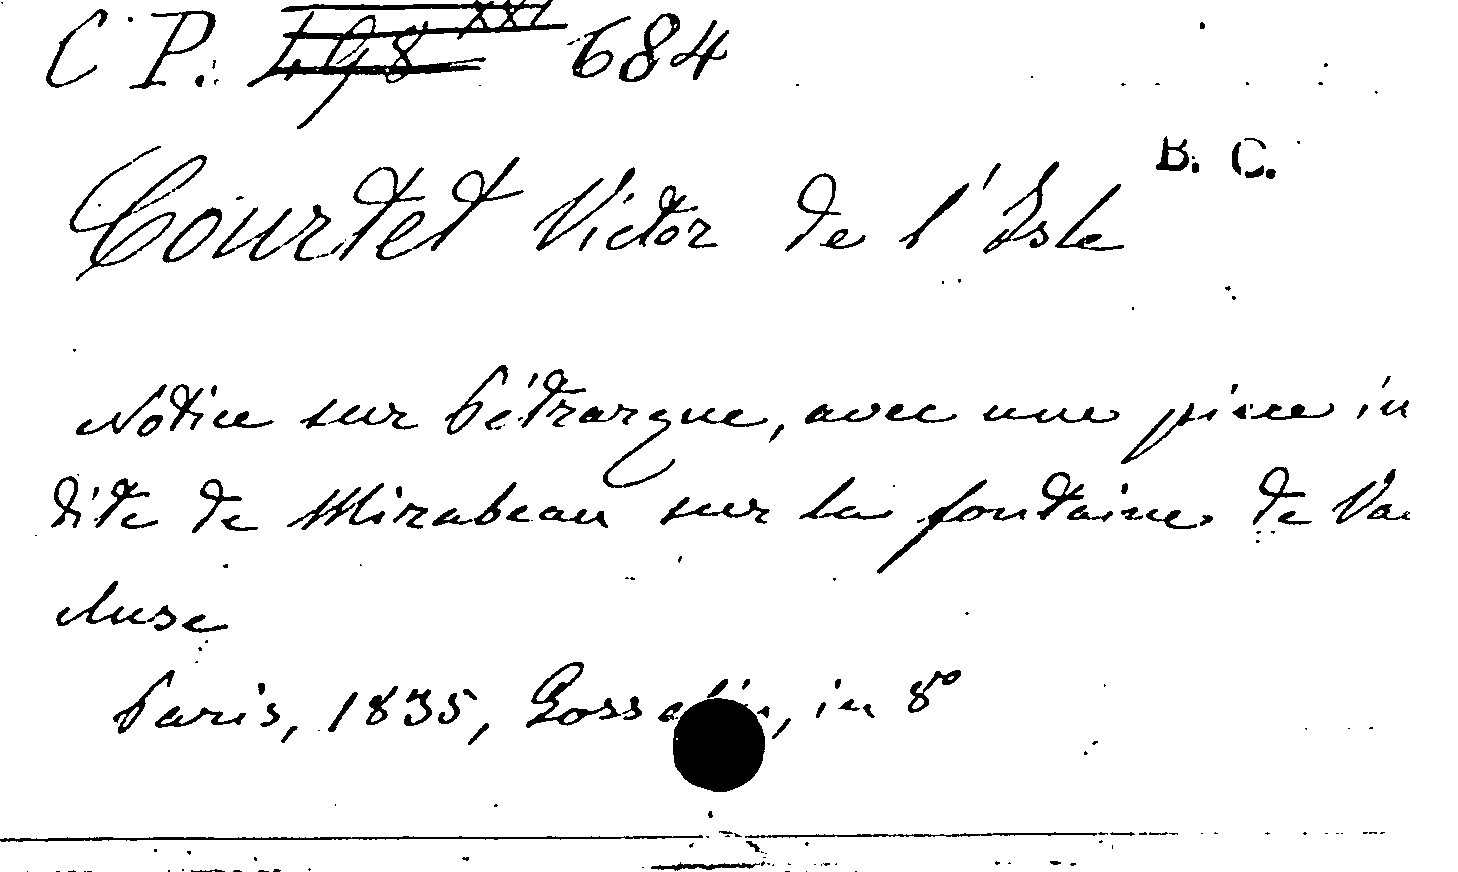 C P. 498 XXI 684
B. C.
Courtet Victor de l'Isle
Notice sur Pétrarque, avec une pièce in
dite de Mirabeau sur la fontaine de Vau
cluse
Paris, 1835, Gosselin, in 8º